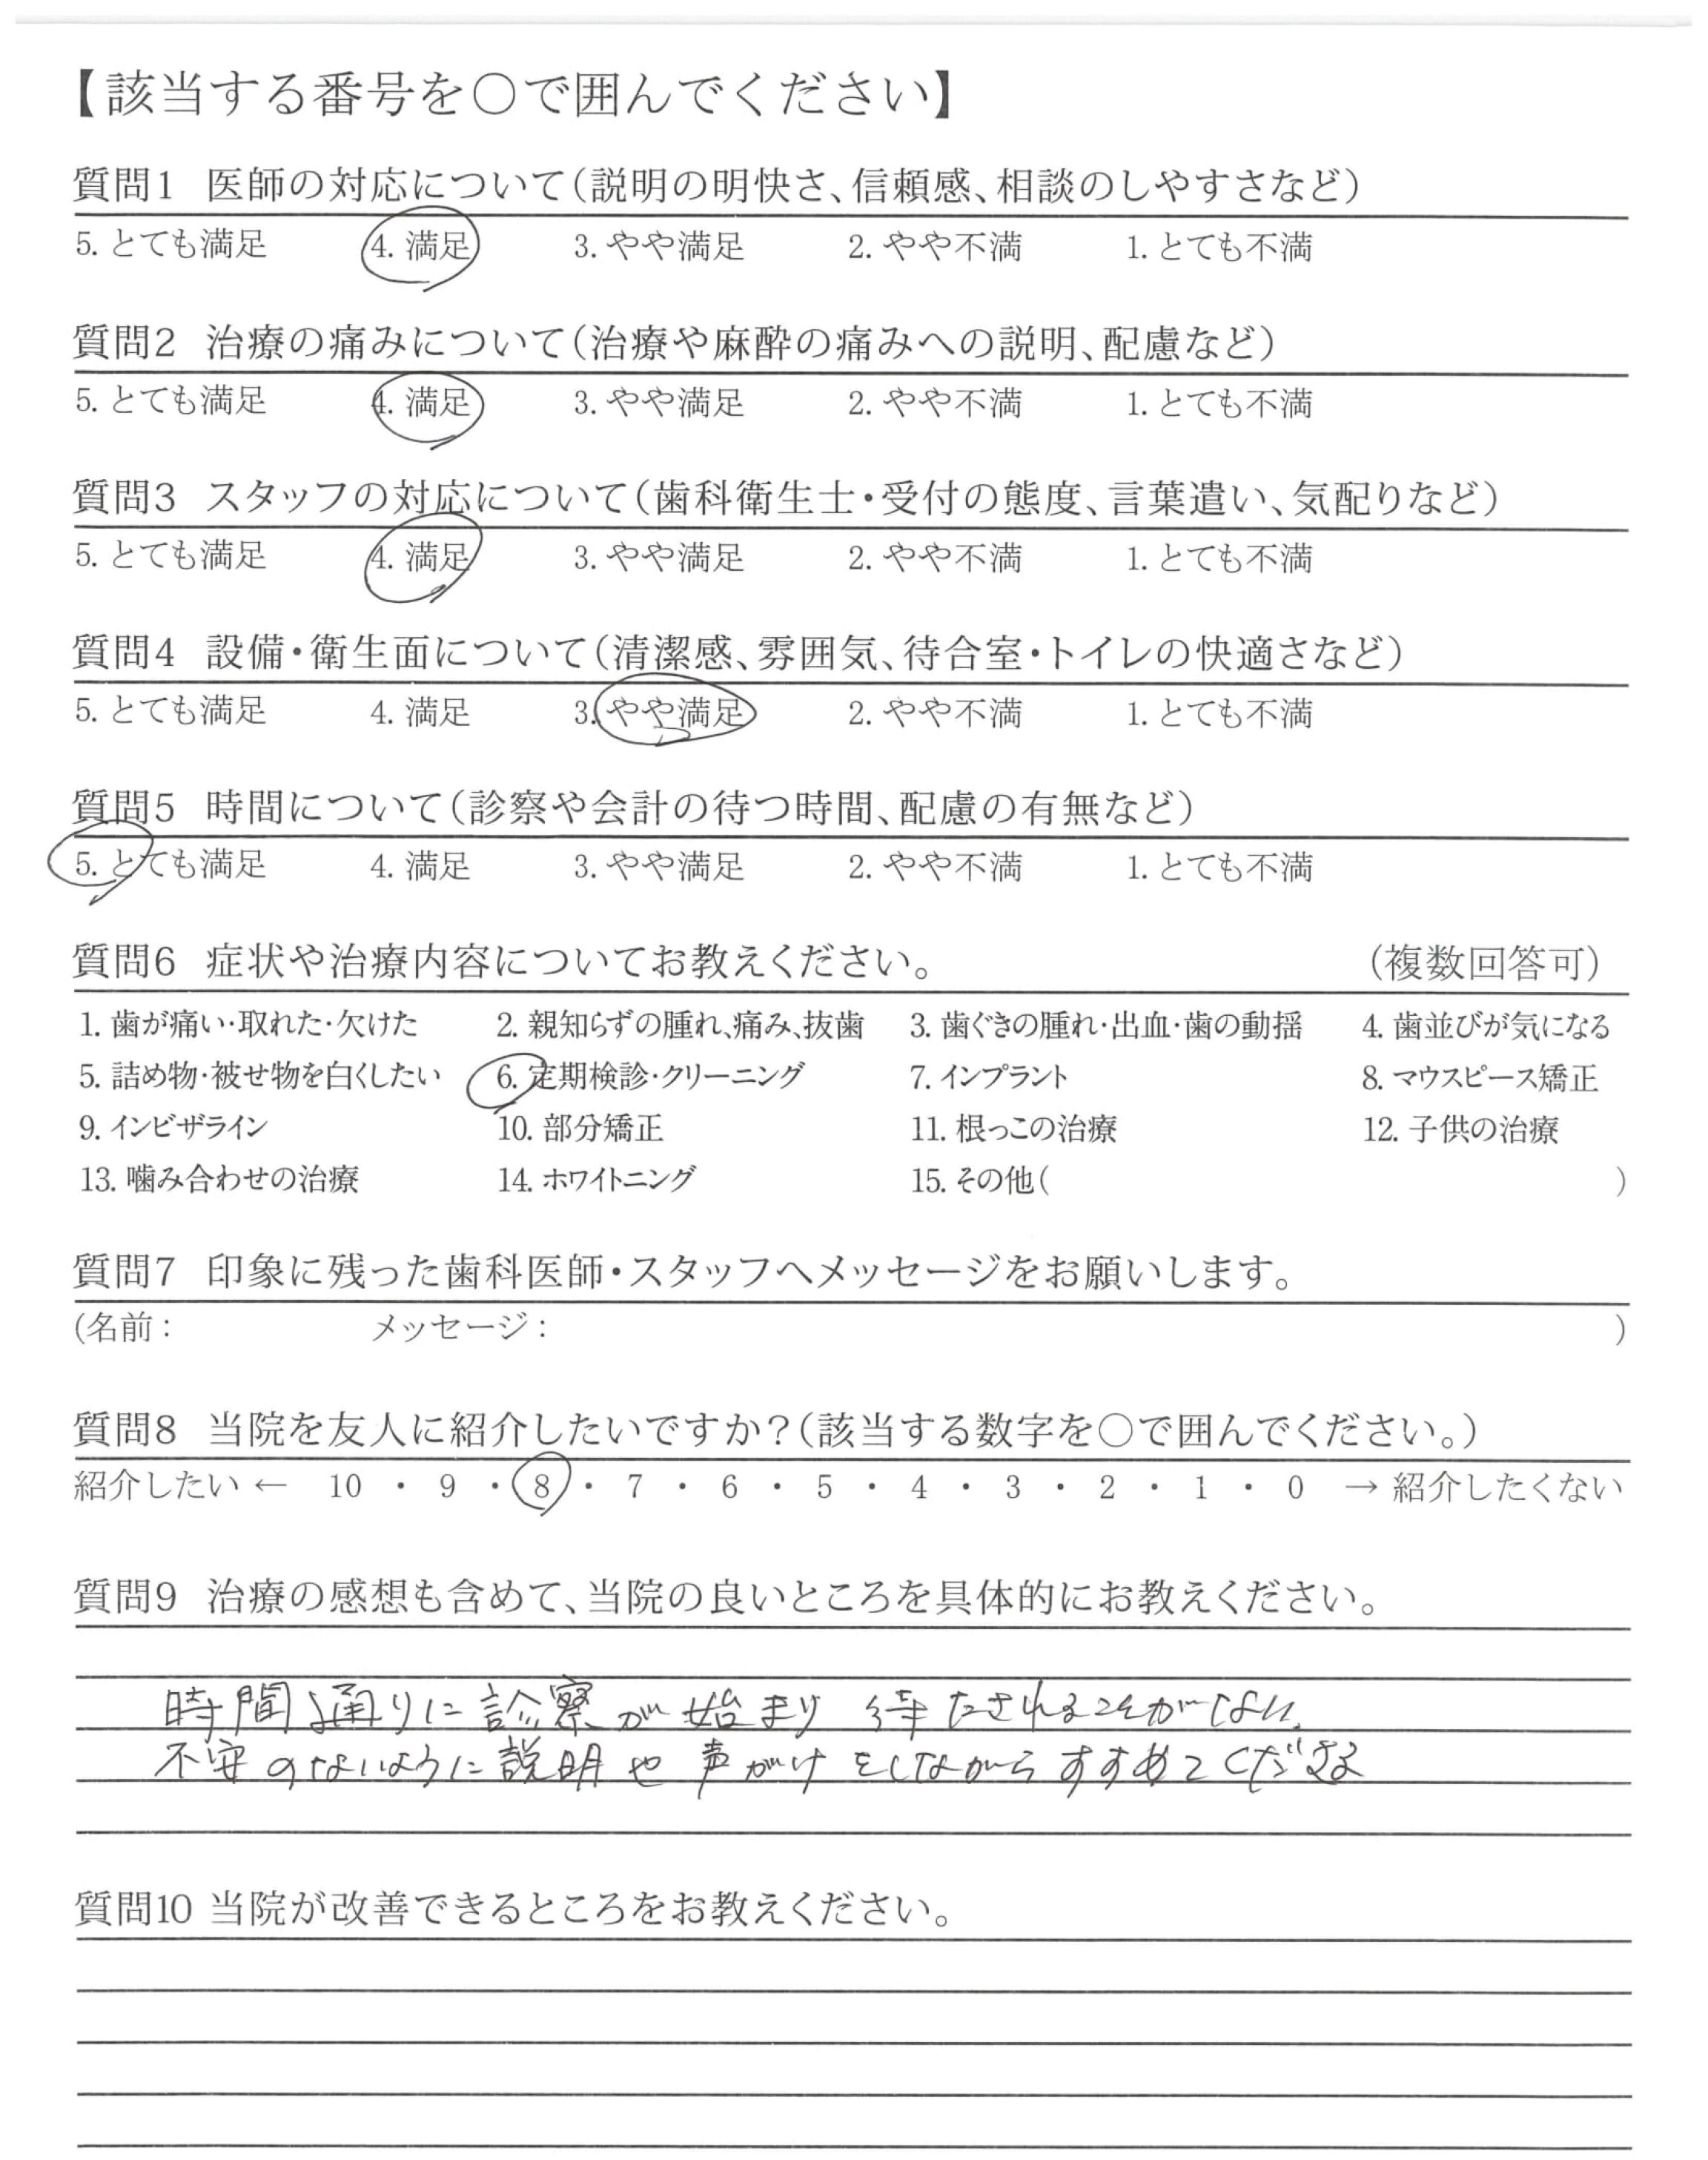 【該当する番号を○で囲んでください】
質問1 医師の対応について（説明の明快さ、信頼感、相談のしやすさなど）
5. とても満足 4. 満足 3. やや満足 2. やや不満 1. とても不満
質問2 治療の痛みについて（治療や麻酔の痛みへの説明、配慮など）
5. とても満足 4. 満足 3. やや満足 2. やや不満 1. とても不満
質問3 スタッフの対応について（歯科衛生士・受付の態度、言葉遣い、気配りなど）
5. とても満足 4. 満足 3. やや満足 2. やや不満 1. とても不満
質問4 設備・衛生面について（清潔感、雰囲気、待合室・トイレの快適さなど）
5. とても満足 4. 満足 3. やや満足 2. やや不満 1. とても不満
質問5 時間について（診察や会計の待つ時間、配慮の有無など）
5. とても満足 4. 満足 3. やや満足 2. やや不満 1. とても不満
質問6 症状や治療内容についてお教えください。 （複数回答可）
1. 歯が痛い・取れた・欠けた 2. 親知らずの腫れ、痛み、抜歯 3. 歯ぐきの腫れ・出血・歯の動揺 4. 歯並びが気になる
5. 詰め物・被せ物を白くしたい 6. 定期検診・クリーニング 7. インプラント 8. マウスピース矯正
9. インビザライン 10. 部分矯正 11. 根っこの治療 12. 子供の治療
13. 噛み合わせの治療 14. ホワイトニング 15. その他( )
質問7 印象に残った歯科医師・スタッフへメッセージをお願いします。
(名前： メッセージ： )
質問8 当院を友人に紹介したいですか？（該当する数字を○で囲んでください。）
紹介したい ← 10 ・ 9 ・ 8 ・ 7 ・ 6 ・ 5 ・ 4 ・ 3 ・ 2 ・ 1 ・ 0 → 紹介したくない
質問9 治療の感想も含めて、当院の良いところを具体的にお教えください。
時間通りに診察が始まり 待たされることがない。
不安のないように説明や声がけをしながらすすめてくださる
質問10 当院が改善できるところをお教えください。